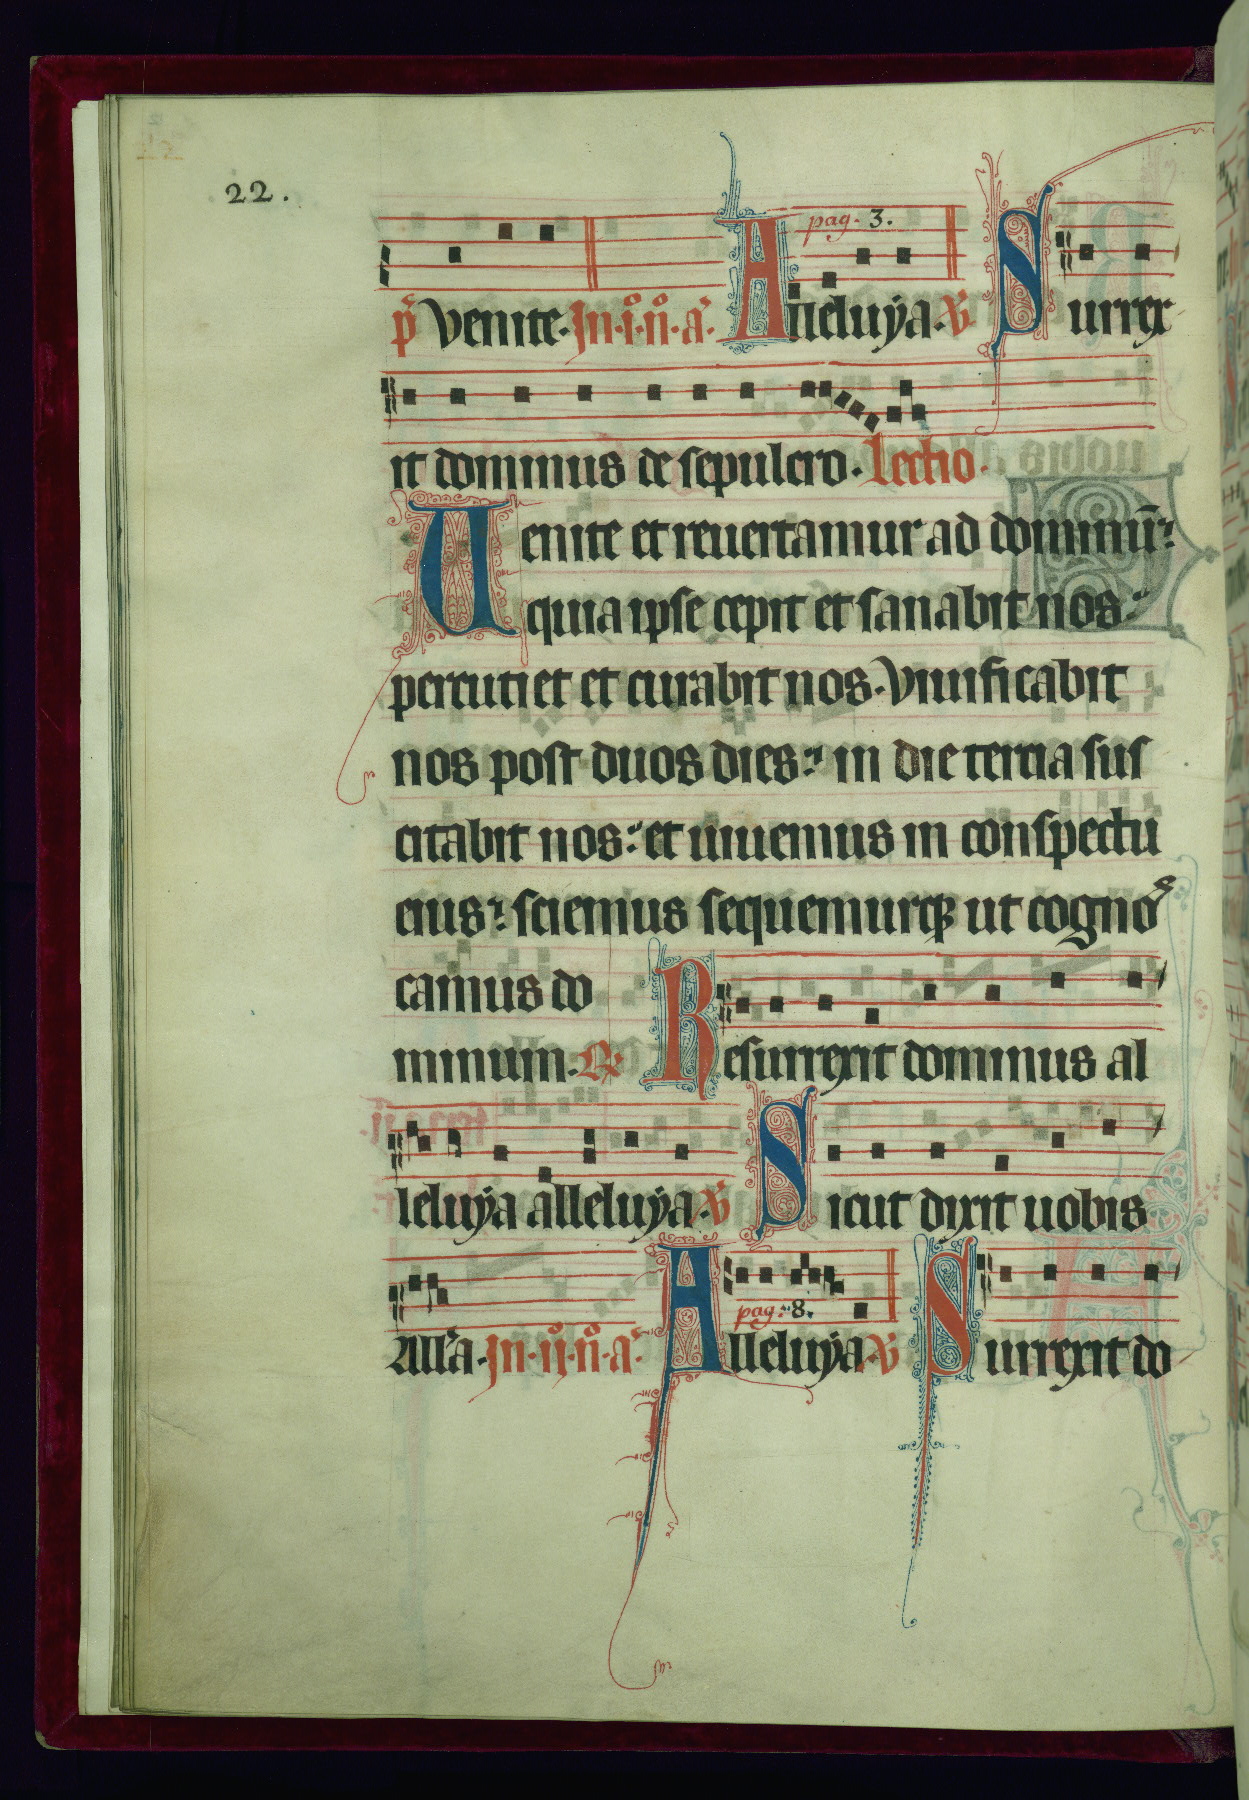 22.
pag. 3.
p̄ Venite. In .i. n̊. a̛. Alleluÿa. V̛ Surrex
it dominus de sepulcro. Lectio.
Uenite et reuertamur ad dominū:
quia ipse cepit et sanabit nos:
percutiet et curabit nos. Viuificabit
nos post duos dies: in die tercia sus
citabit nos: et uiuemus in conspectu
eius: sciemus sequemurqꝫ ut cognos
camus do
minum. ℞ Resurrexit dominus al
leluÿa alleluÿa. V̛ Sicut dixit uobis
pag. 8.
All̛a. In .ii̊. n̊. a̛. Alleluÿa V̛ Surrexit do